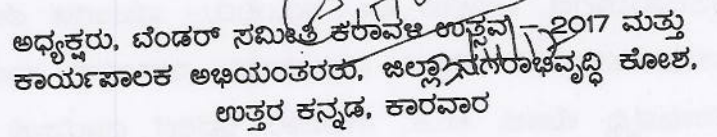 ಅಧ್ಯಕ್ಷರು, ಟೆಂಡರ್ ಸಮಿತಿ ಕರಾವಳಿ ಉತ್ಸವ – 2017 ಮತ್ತು
ಕಾರ್ಯಪಾಲಕ ಅಭಿಯಂತರರು, ಜಿಲ್ಲಾ ನಗರಾಭಿವೃದ್ಧಿ ಕೋಶ,
ಉತ್ತರ ಕನ್ನಡ, ಕಾರವಾರ